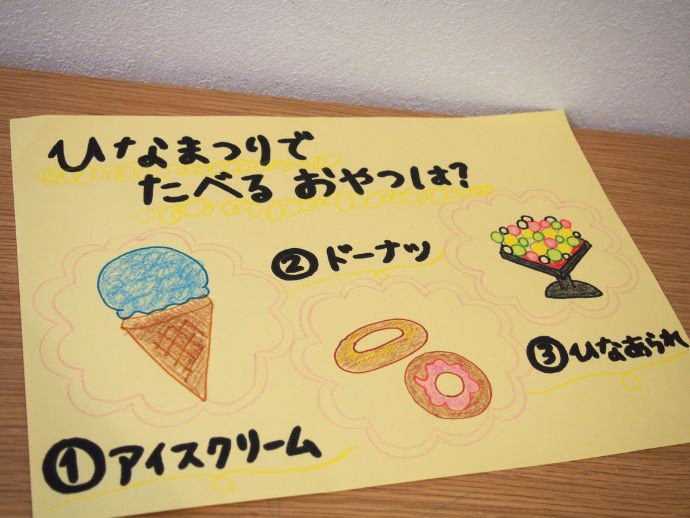 ひなまつりで
たべる おやつは?
①アイスクリーム
②ドーナツ
③ひなあられ